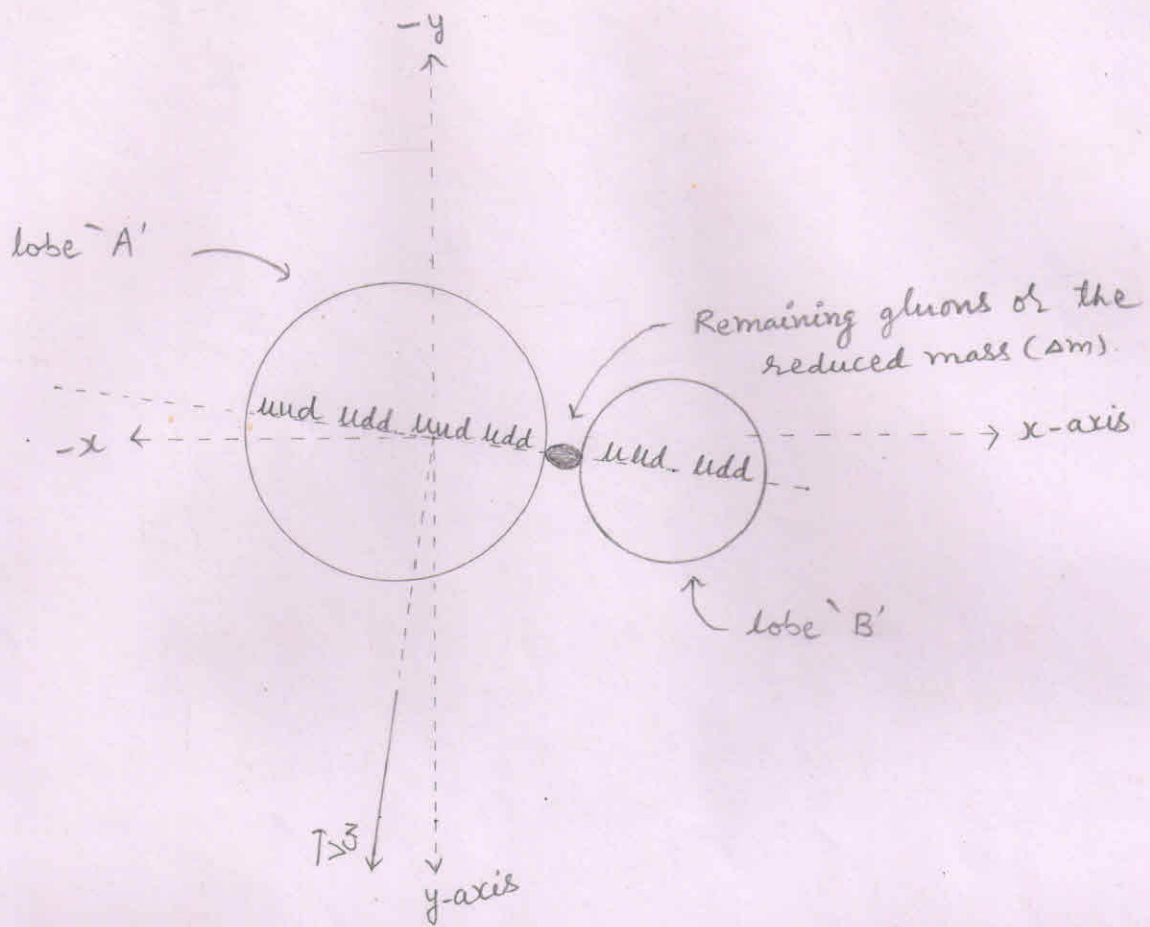 -y
lobe `A'
Remaining gluons or the
reduced mass (Δm).
uud udd uud udd
uud udd
-x
x-axis
lobe `B'
y-axis